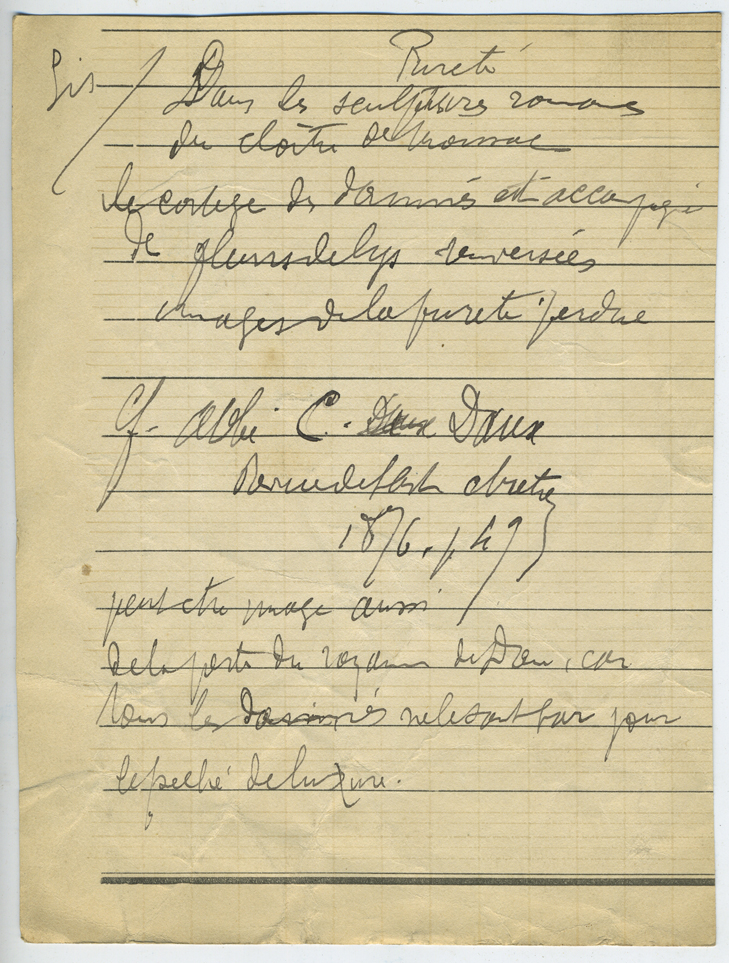 Lis
Pureté
Dans les sculptures romanes
du cloître de Moissac
le cortège des damnés est accompagné
de fleurs de lys renversées
images de la pureté perdue
Cf. abbé C. Daux Daux
Revue de l'art chrétien
1876. p. 49
peut etre image aussi
de la perte du royaume de Dieu, car
tous les damnés ne le sont pas pour
le péché de luxure.